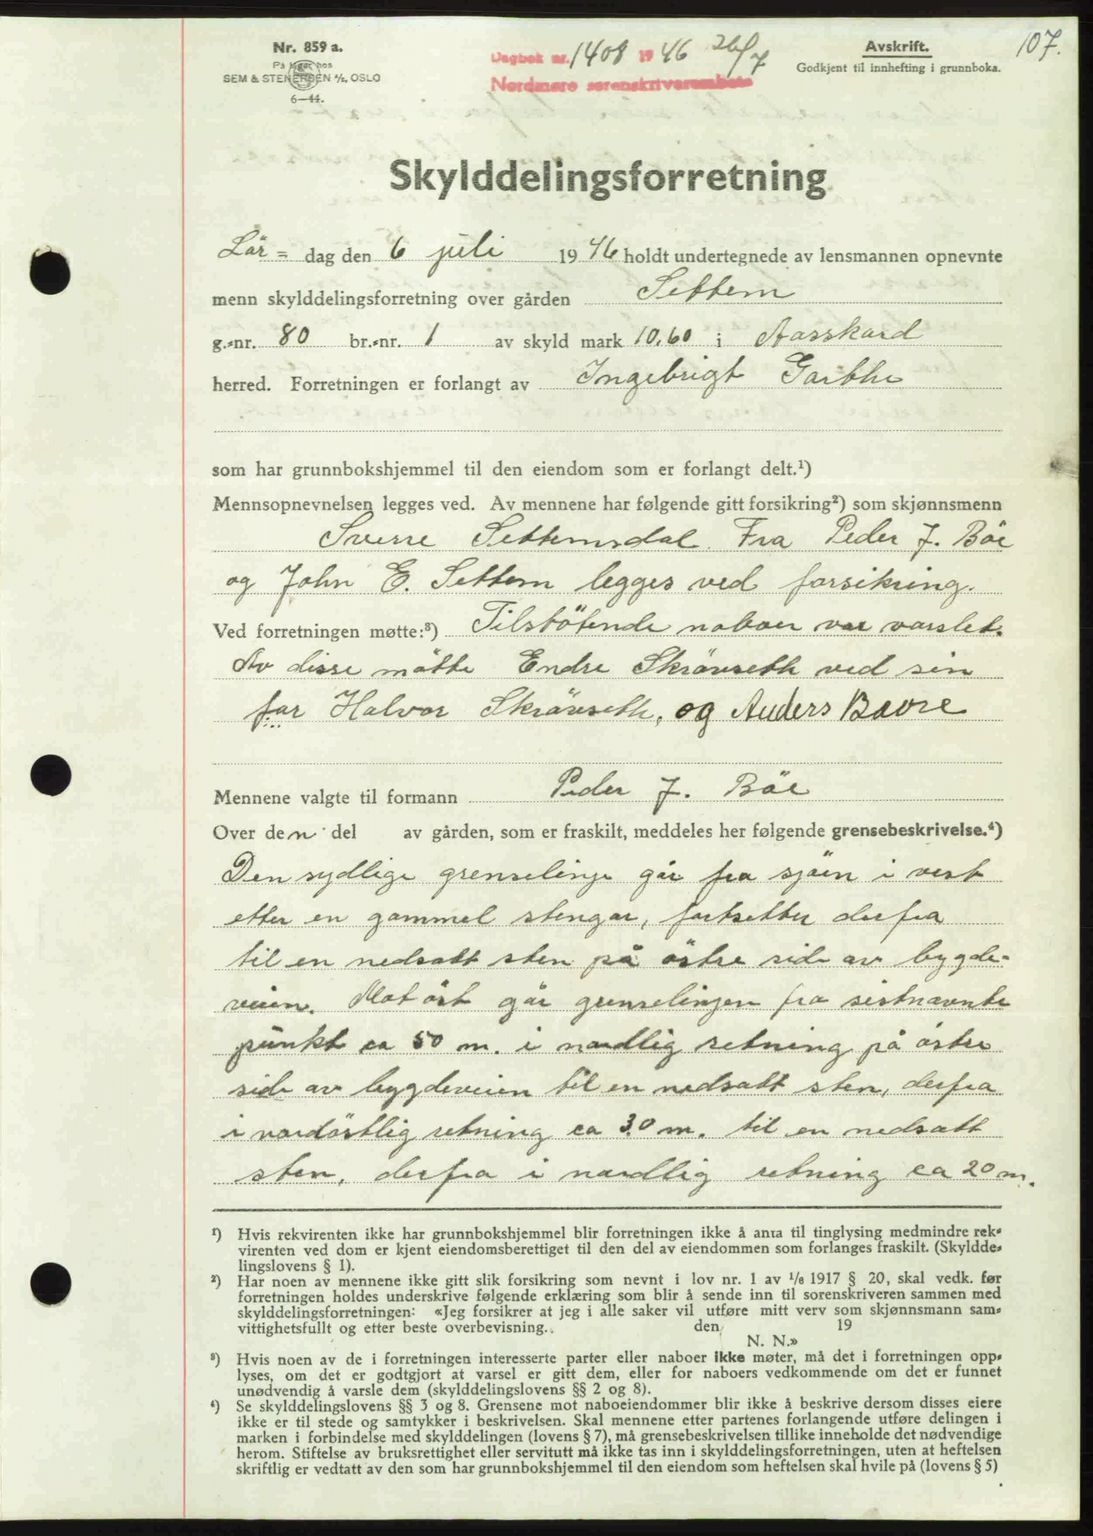 Nr. 859 a.
På lager hos
SEM & STENERSEN A/S, OSLO
6—44.
Dagbok nr. 1408 1946 26/7
Nordmøre sorenskriverembete
Avskrift.
Godkjent til innhefting i grunnboka.
107.
Skylddelingsforretning
Lör = dag den 6 juli 1946 holdt undertegnede av lensmannen opnevnte
menn skylddelingsforretning over gården Settem
g.-nr. 80 br.-nr. 1 av skyld mark 10,60 i Aasskard
herred. Forretningen er forlangt av Ingebrigt Garthe
som har grunnbokshjemmel til den eiendom som er forlangt delt.¹)
Mennsopnevnelsen legges ved. Av mennene har følgende gitt forsikring²) som skjønnsmenn
Sverre Settemsdal. Fra Peder J. Böe
og John E. Settem legges ved forsikring.
Ved forretningen møtte:³) Tilstötende naboer var varslet.
Av disse mötte Endre Skrövseth ved sin
far Halvor Skrövseth, og Anders Bævre
Mennene valgte til formann Peder J. Böe
Over den del av gården, som er fraskilt, meddeles her følgende grensebeskrivelse.⁴)
Den sydlige grenselinje går fra sjöen i vest
etter en gammel stengar, fortsetter derfra
til en nedsatt sten på östre side av bygde-
veien. Mot öst går grenselinjen fra sistnævnte
punkt ca 50 m. i nordlig retning på östre
side av bygdeveien til en nedsatt sten, derfra
i nordöstlig retning ca 30 m. til en nedsatt
sten, derfra i nordlig retning ca 20 m.
¹) Hvis rekvirenten ikke har grunnbokshjemmel blir forretningen ikke å anta til tinglysing medmindre rek-
virenten ved dom er kjent eiendomsberettiget til den del av eiendommen som forlanges fraskilt. (Skyldde-
lingslovens § 1).
²) Har noen av mennene ikke gitt slik forsikring som nevnt i lov nr. 1 av 1/6 1917 § 20, skal vedk. før
forretningen holdes underskrive følgende erklæring som blir å sende inn til sorenskriveren sammen med
skylddelingsforretningen: «Jeg forsikrer at jeg i alle saker vil utføre mitt verv som skjønnsmann sam-
vittighetsfullt og etter beste overbevisning. den 19
N. N.»
³) Hvis noen av de i forretningen interesserte parter eller naboer ikke møter, må det i forretningen opp-
lyses, om det er godtgjort at varsel er gitt dem, eller for naboers vedkommende om det er funnet
unødvendig å varsle dem (skylddelingslovens §§ 2 og 8).
⁴) Se skylddelingslovens §§ 3 og 8. Grensene mot naboeiendommer blir ikke å beskrive dersom disses eiere
ikke er til stede og samtykker i beskrivelsen. Skal mennene etter partenes forlangende utføre delingen i
marken i forbindelse med skylddelingen (lovens § 7), må grensebeskrivelsen tillike inneholde det nødvendige
herom. Stiftelse av bruksrettighet eller servitutt må ikke tas inn i skylddelingsforretningen, uten at heftelsen
skriftlig er vedtatt av den som har grunnbokshjemmel til den eiendom som heftelsen skal hvile på (lovens § 5)